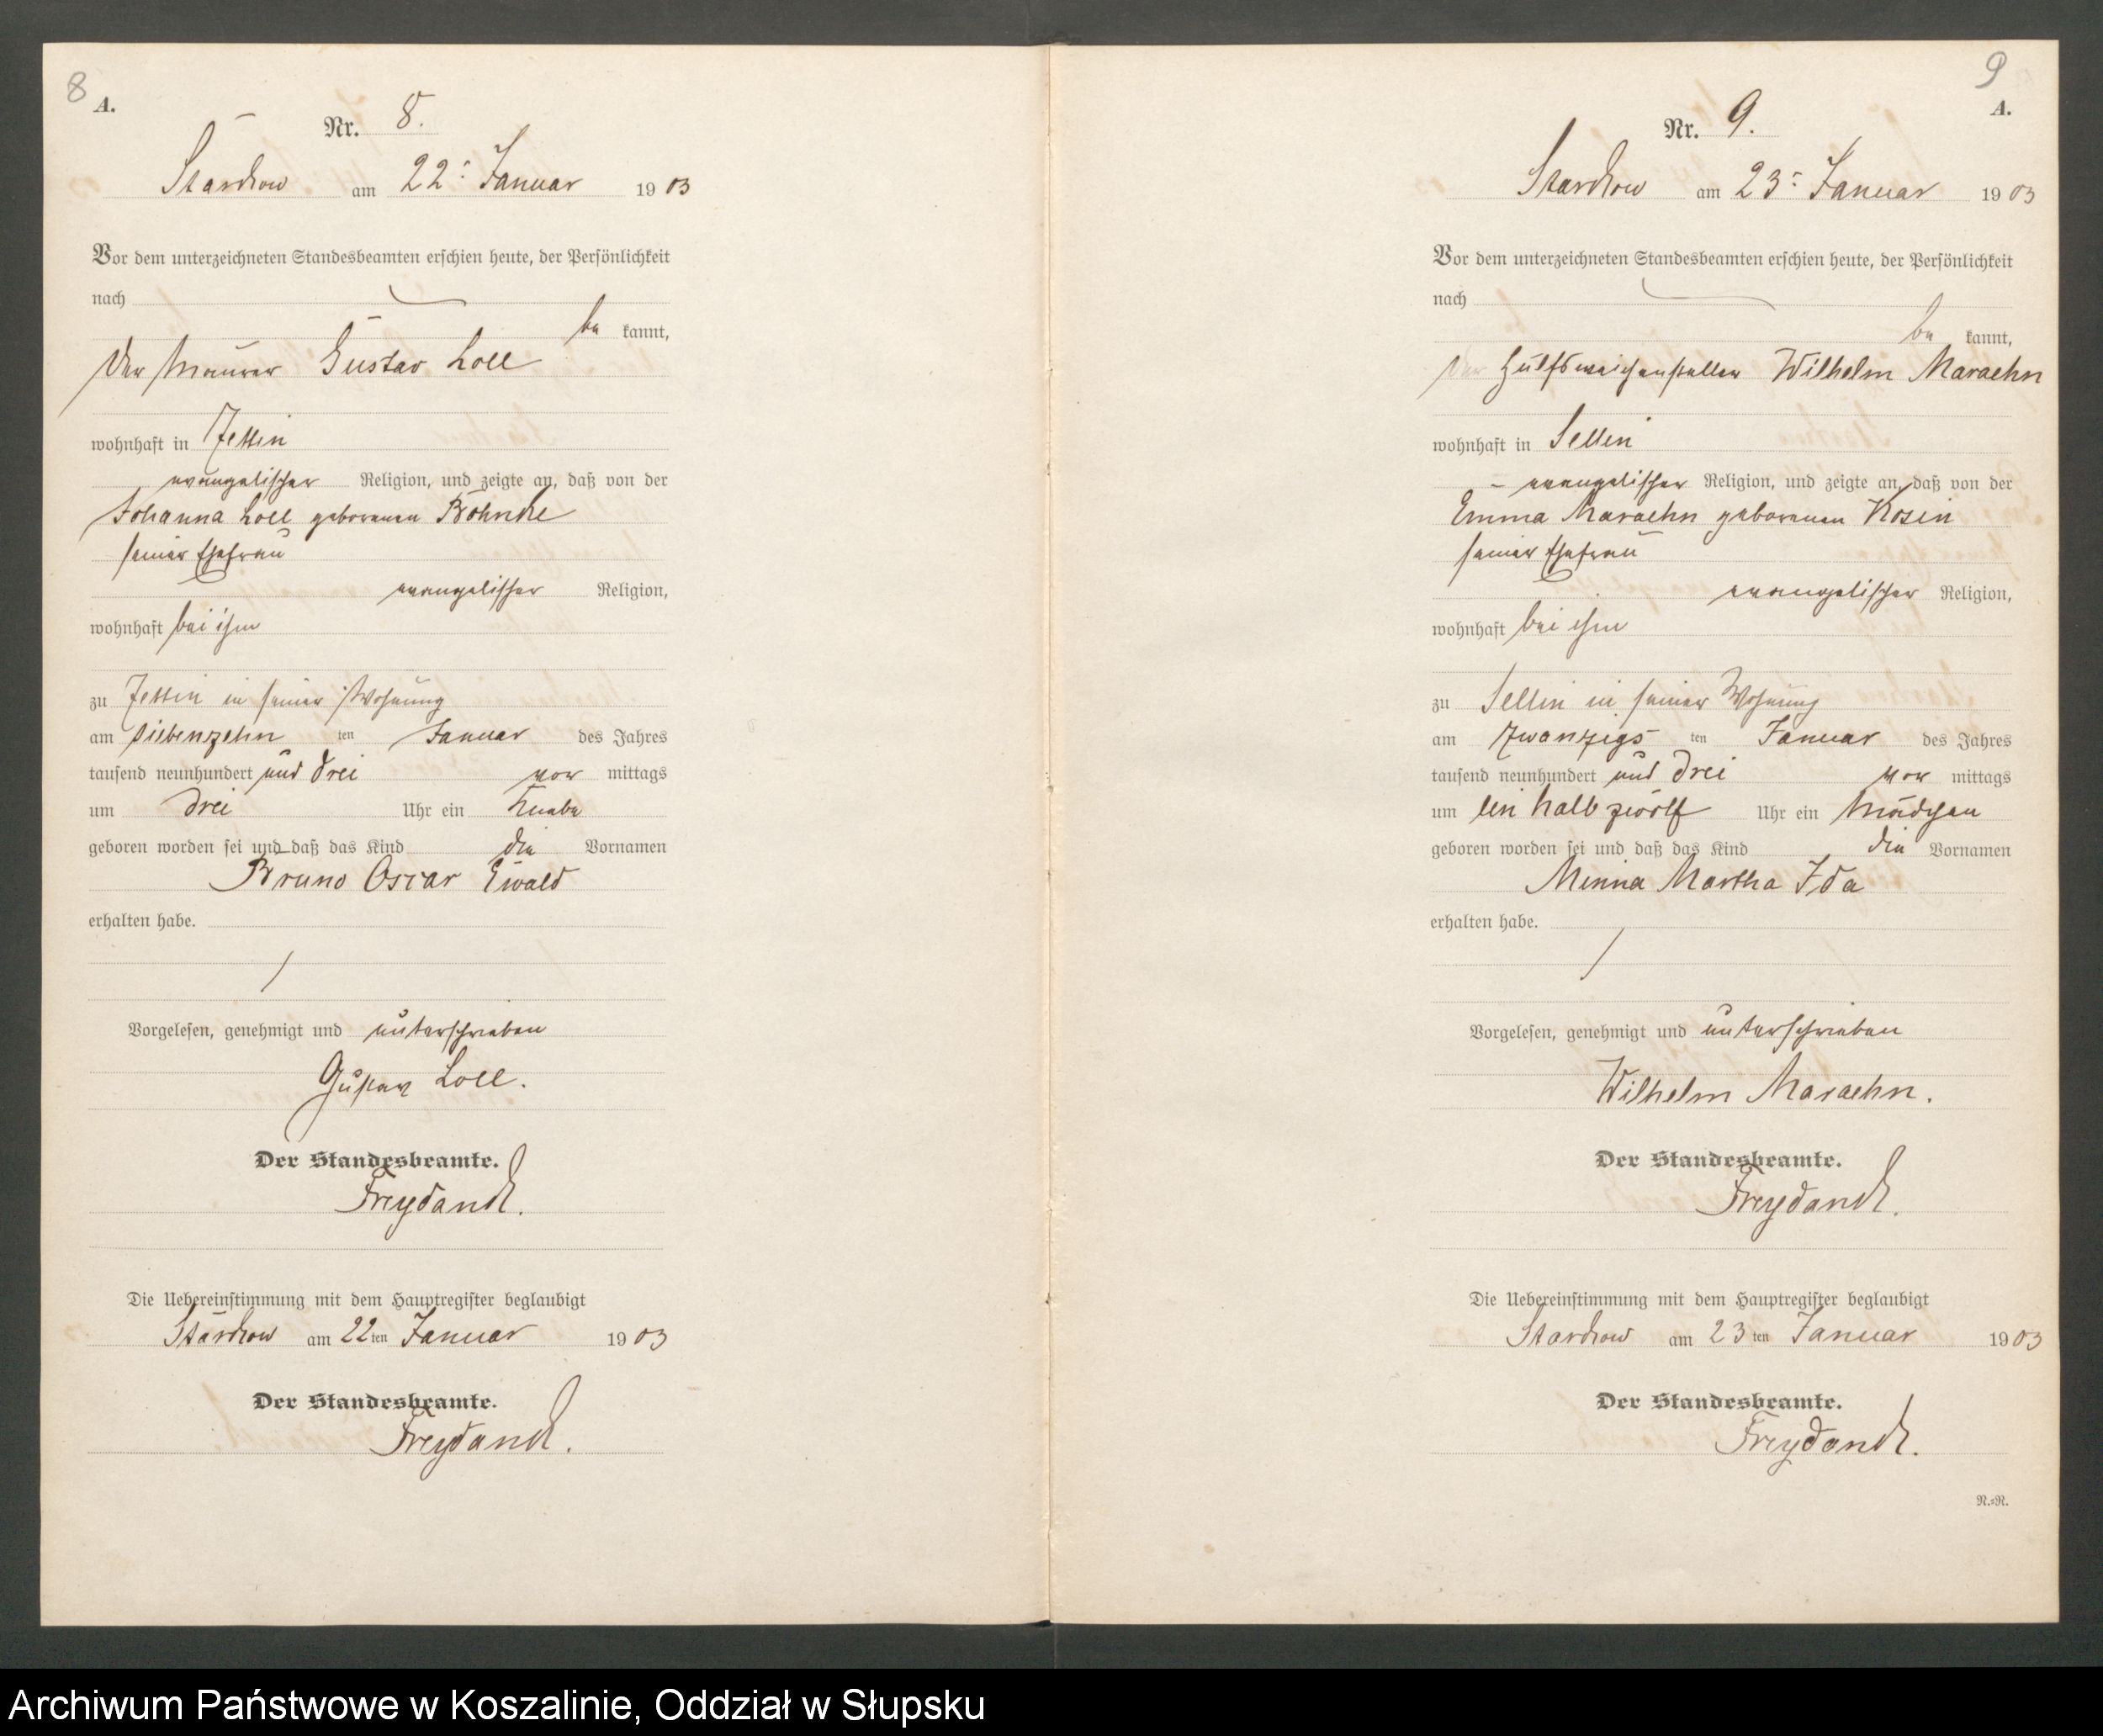 8
A.
Nr. 8.
Starckow am 22: Januar 1903
Vor dem unterzeichneten Standesbeamten erschien heute, der Persönlichkeit
nach
be kannt,
Der Maurer Gustav Loll
wohnhaft in Jettin
evangelischer Religion, und zeigte an, daß von der
Johanna Loll geborenen Böhncke
seiner Ehefrau
evangelischer Religion,
wohnhaft bei ihm
zu Jettin in seiner Wohnung
am siebenzehn ten Januar des Jahres
tausend neunhundert und drei vor mittags
um drei Uhr ein Knabe
geboren worden sei und daß das Kind die Vornamen
Bruno Oscar Ewald
erhalten habe.
Vorgelesen, genehmigt und unterschrieben
Gustav Loll.
Der Standesbeamte.
Freydanck.
Die Uebereinstimmung mit dem Hauptregister beglaubigt
Starckow am 22ten Januar 1903
Der Standesbeamte.
Freydanck.
9
A.
Nr. 9.
Starckow am 23: Januar 1903
Vor dem unterzeichneten Standesbeamten erschien heute, der Persönlichkeit
nach
be kannt,
Der Hülfsweichensteller Wilhelm Maraehn
wohnhaft in Sellin
evangelischer Religion, und zeigte an, daß von der
Emma Maraehn geborenen Kosin
seiner Ehefrau
evangelischer Religion,
wohnhaft bei ihm
zu Sellin in seiner Wohnung
am Zwanzigs ten Januar des Jahres
tausend neunhundert und drei vor mittags
um ein halb zwölf Uhr ein Mädchen
geboren worden sei und daß das Kind die Vornamen
Minna Martha Ida
erhalten habe.
Vorgelesen, genehmigt und unterschrieben
Wilhelm Maraehn.
Der Standesbeamte.
Freydanck.
Die Uebereinstimmung mit dem Hauptregister beglaubigt
Starckow am 23ten Januar 1903
Der Standesbeamte.
Freydanck.
N.=R.
Archiwum Państwowe w Koszalinie, Oddział w Słupsku